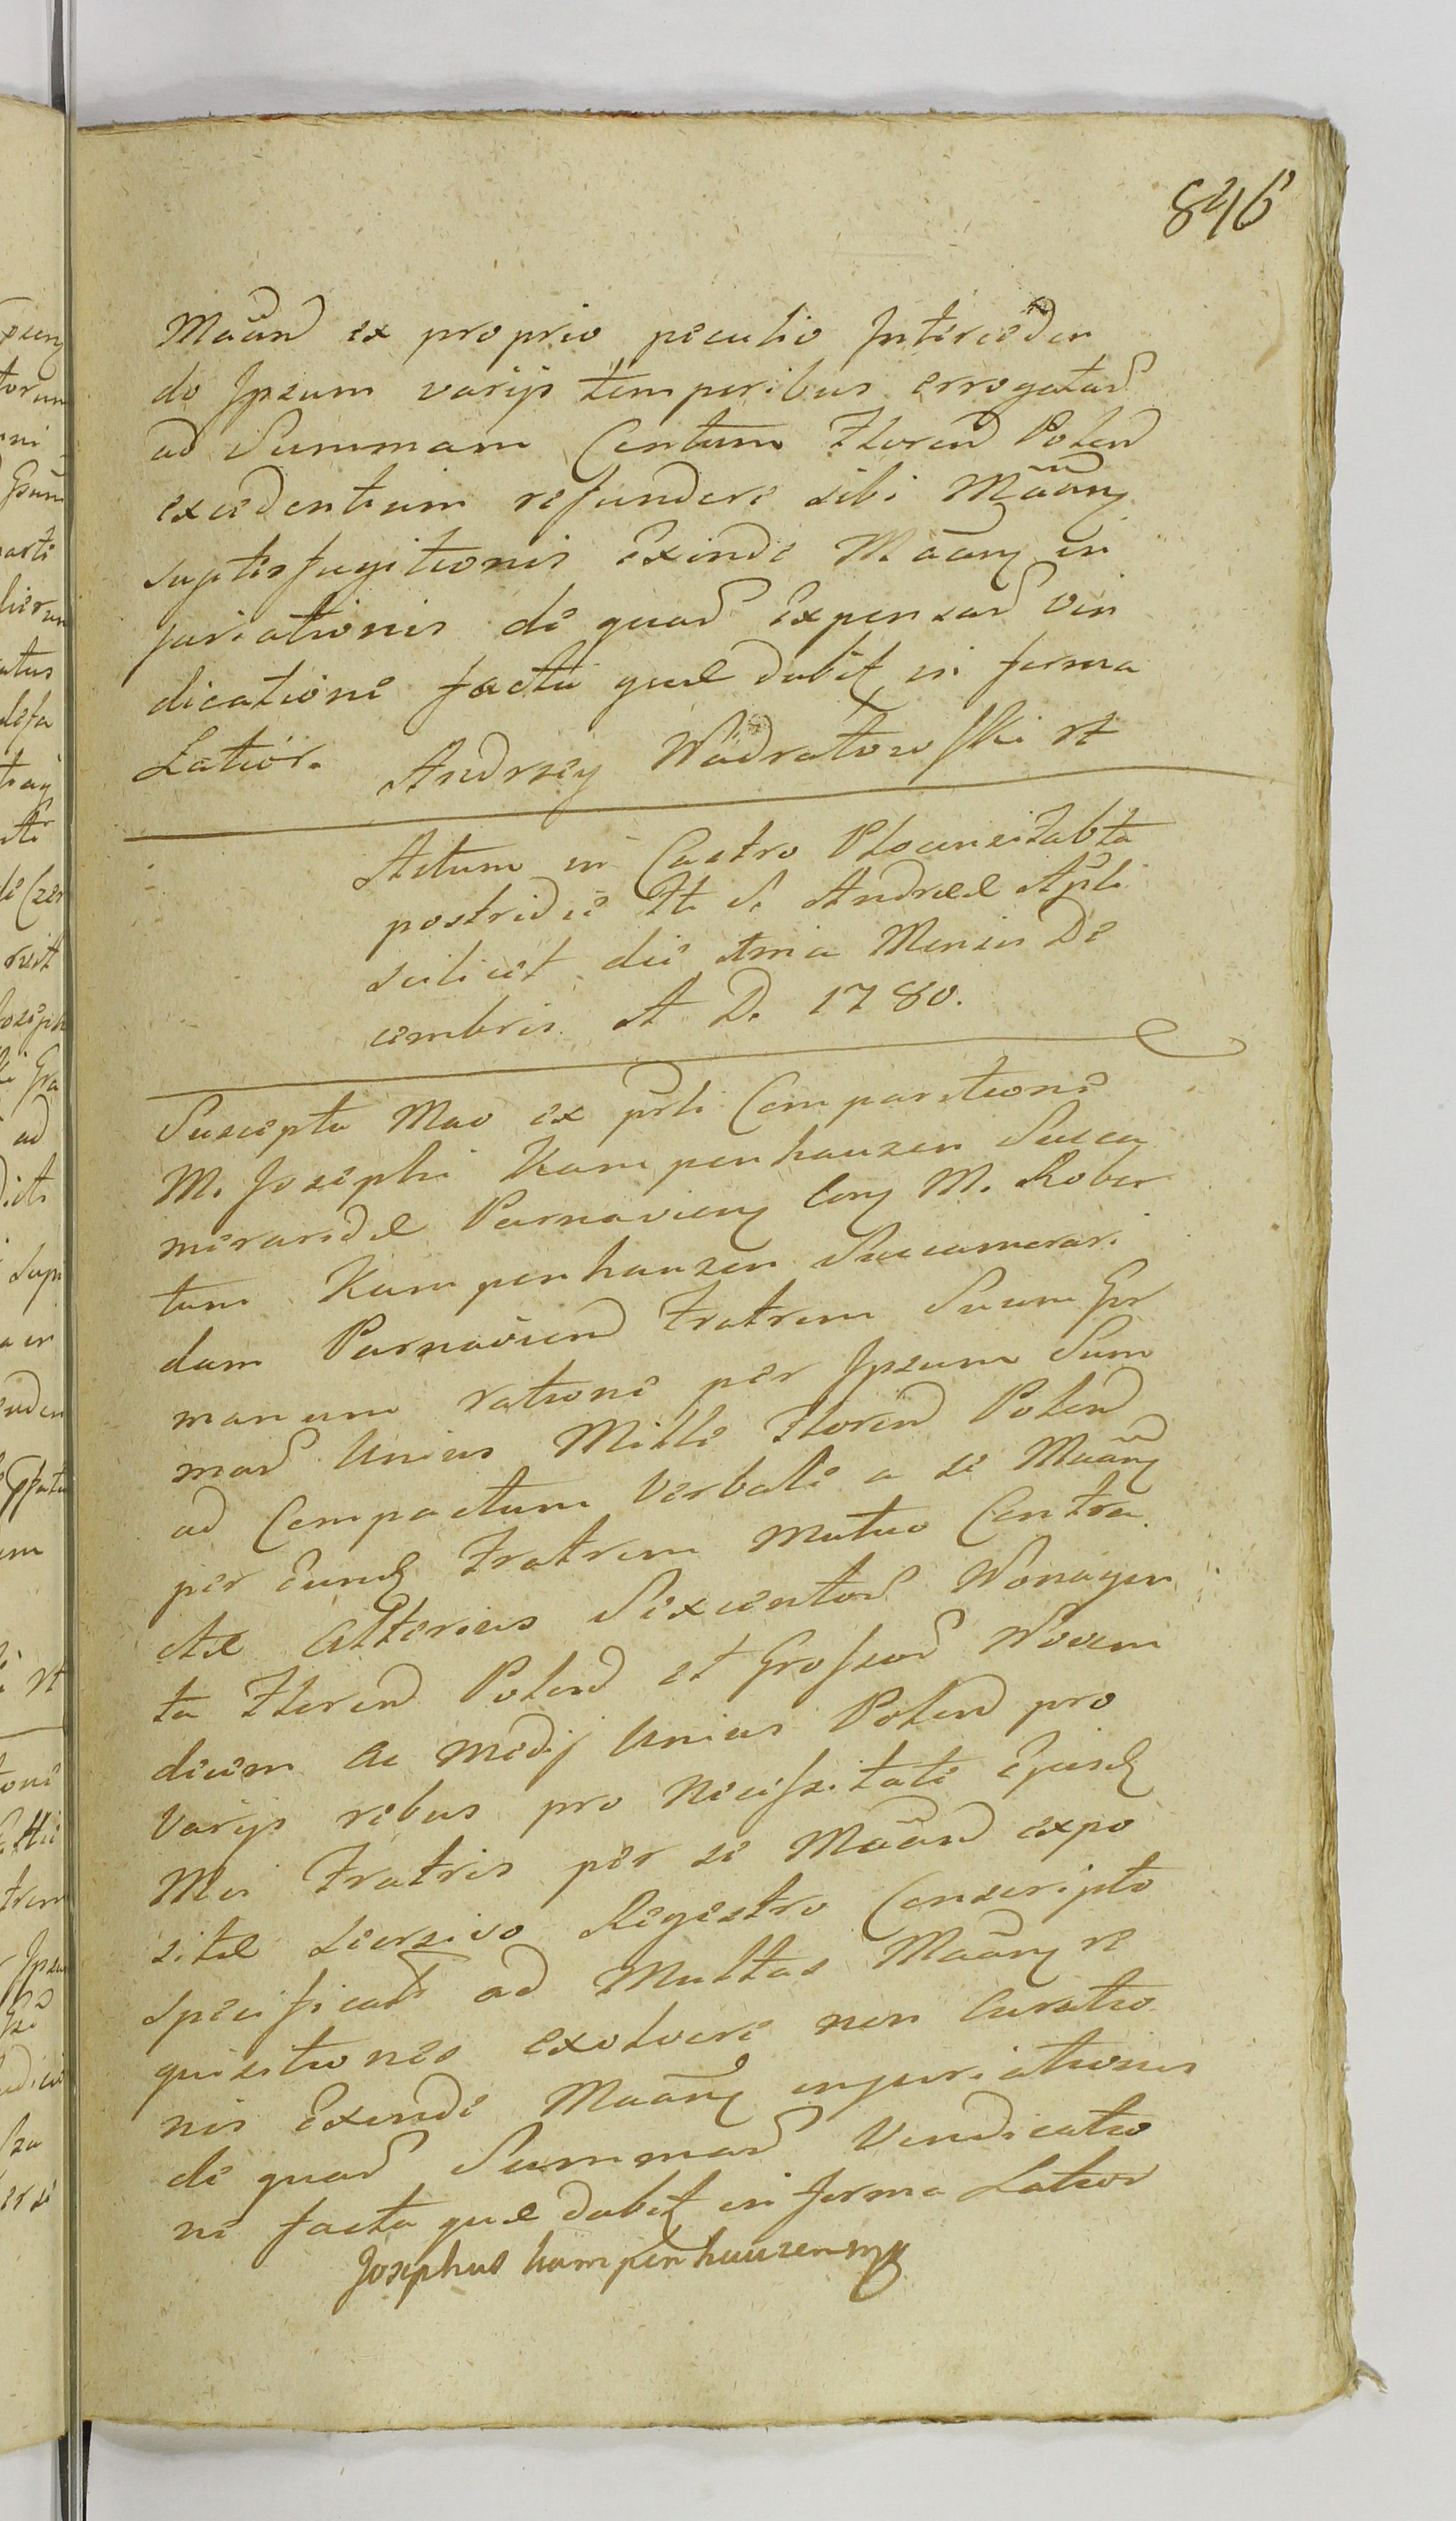 846
Mãañd ex proprio peculio Interceden
do Ipsum varijs temporibus errogatar
ad Summam Centum Floren Polon
excedentium refundere sibi Mãanẽ
suptisfugitionis Exinde Mãanẽ in
juriationis de quar Expensar vin
dicatione facta quæ dabit in forma
Latior. Andrzey Wądratowski mp
Actum in Castro Plocensi Sabto
postridie Fti S. Andreæ Apli
scilicet die 1ma Mensis De
cembris A D. 1780.
Suscepta Mao ex prli Comparitione
M. Josephi Kampenhauzen Succa
meraridæ Parnavienẽ Con M. Rober
tum Kampenhauzen Succamerari
dam Parnaviend Fratrem Suum Ger
manum ratione per Ipsum Sum
mar Unius Mille Floren Polon
ad Compactum verbale a se Mãanẽ
per Eund Fratrem Mutuo Contra
ctæ Alterius Sixcentor Nonagin
ta Floren Polon et Grossor Novem
decim Ac Medij Unius Polon pro
varijs rebus pro Necessitate Ejusd
Mei Fratris per se Mãand expo
sitæ Seorsivo Regestro Conscripto
specificat ad Multas Mãanẽ re
quisitiones exolvere non Curatio
nis Exinde Mãanẽ injuriationis
de quar Summar Vindicatio
ne facta quæ dabit in forma Latior
Josephus kampenhauzen mp